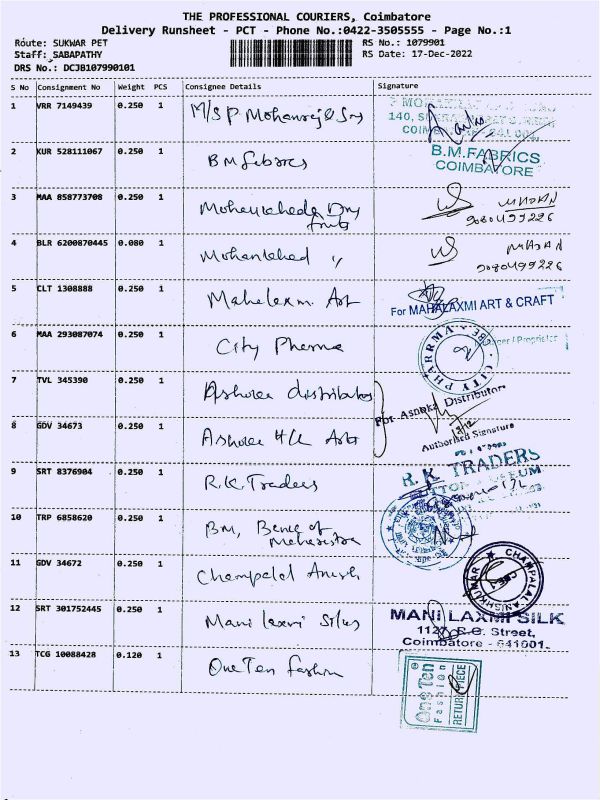 THE PROFESSIONAL COURIERS, Coimbatore
Delivery Runsheet - PCT - Phone No.:0422-3505555 - Page No.:1
Route: SUKWAR PET RS No.: 1079901
Staff: SABAPATHY RS Date: 17-Dec-2022
DRS No.: DCJB107990101
S No Consignment No Weight PCS Consignee Details Signature
1 VRR 7149439 0.250 1 M/S P Mohanraj & Sons
2 KUR 528111067 0.250 1 BM Febrics
B.M.FABRICS
COIMBATORE
3 MAA 858773708 0.250 1 Dry
fruits
MADAN
9080499226
4 BLR 6200870445 0.080 1 "
MADAN
9080499226
5 CLT 1308888 0.250 1 Mahalaxmi Art
For MAHALAXMI ART & CRAFT
/ Proprietor
6 MAA 293087074 0.250 1 City Pharma
CITY PHARRMA CBE
7 TVL 345390 0.250 1 Ashoka distributors
For Ashoka Distributors
17/12
Authorised Signature
8 GDV 34673 0.250 1 Ashoka Art
9 SRT 8376904 0.250 1 R.K. Traders
R. K. TRADERS
10 TRP 6858620 0.250 1 BM, Bank of
Maharastra
11 GDV 34672 0.250 1 Champalal Anish
CHAMPALAL ANISHKUMAR CBE-1
12 SRT 301752445 0.250 1 Mani laxmi Silks
MANI LAXMI SILK
Street,
Coimbatore - 641001.
13 TCG 10088428 0.120 1 One Ten fashion
One Ten
Fashion
RETURN PIECE